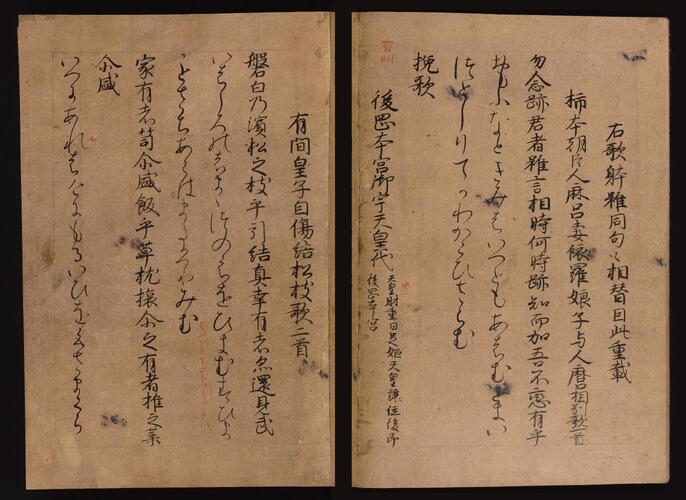 右歌躰雖同句々相替因此重載
柿本朝臣人麻呂妻依羅娘子与人麿相別歌一首
勿念跡君者雖言相時何時跡知而加吾不恋有乎
おもふなときみはいへともあはむとき
いつとしりてかわかこひさらむ
挽歌
後岡本宮御宇天皇代 天皇財重日足姫天皇譲位後即
後岡本宮
有間皇子自傷結松枝歌二首
磐白乃濱松之枝乎引結真幸有者亦還見武
いはしろのはままつのえをひきむすひ
まさちあらはまたかへりみむ
家有者笥尒盛飯乎草枕旅尒之有者椎之葉
尒盛
いへにあれはけにもるいひをくさまくら